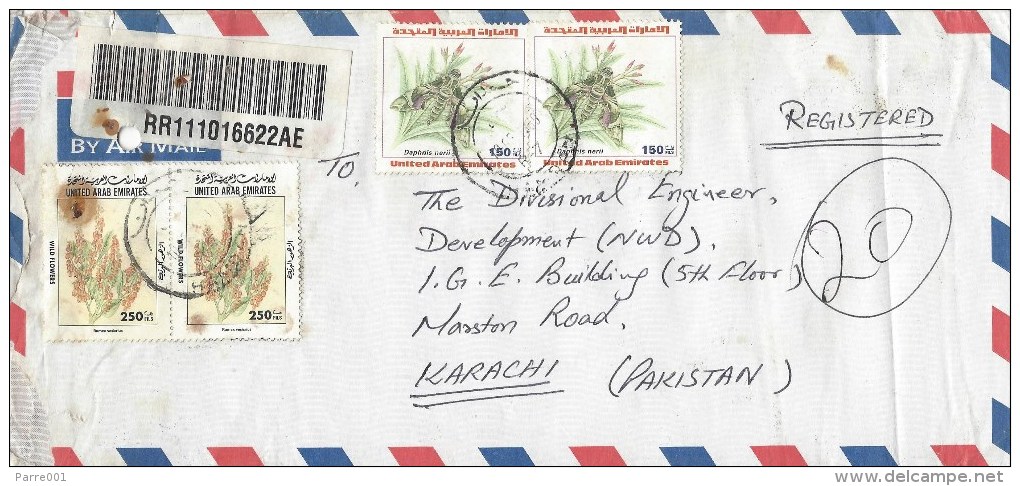 RR111016622AE
BY AIR MAIL
الامارات العربية المتحدة
الامارات العربية المتحدة
Daphnis nerii
150
United Arab Emirates
Daphnis nerii
150
United Arab Emirates
REGISTERED
الامارات العربية المتحدة
UNITED ARAB EMIRATES
WILD FLOWERS
250 FILS
Rumex vesicarius
الامارات العربية المتحدة
UNITED ARAB EMIRATES
WILD FLOWERS
250 FILS
Rumex vesicarius
TO,
The Divisional Engineer,
Development (NWD),
I.G.E. Building (5th Floor)
Marston Road,
KARACHI (PAKISTAN)
20
Parre001
delcampe.net